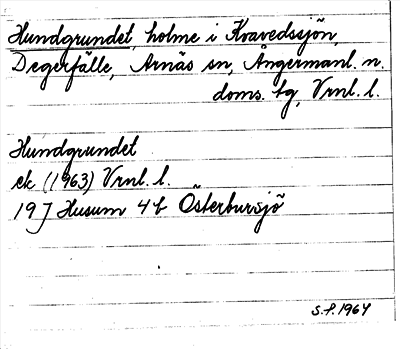 Hundgrundet, holme i Kvavedssjön,
Degerfälle, Arnäs sn, Ångermanl. n.
doms. tg, Vrnl. l.
Hundgrundet
ek (1963) Vrnl. l.
19J Husum 4b Österbursjö
S.F. 1964